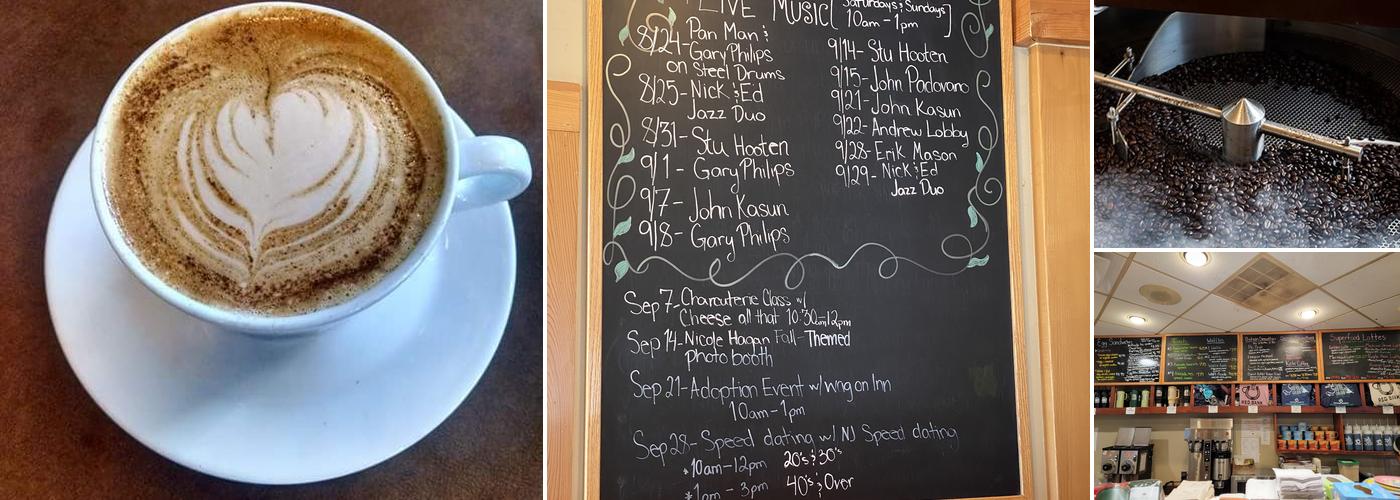 LIVE MUSIC [Saturdays & Sundays
10am-1pm]
8/24- Pan Man &
Gary Philips
on Steel Drums
8/25- Nick & Ed
Jazz Duo
8/31- Stu Hooten
9/1- Gary Philips
9/7- John Kasun
9/8- Gary Philips
9/14- Stu Hooten
9/15- John Padovano
9/21- John Kasun
9/22- Andrew Lobby
9/28- Erik Mason
9/29- Nick & Ed
Jazz Duo
Sep 7- Charcuterie Class w/
Cheese all that 10:30am-12pm
Sep 14- Nicole Hagan Fall-Themed
photo booth
Sep 21- Adoption Event w/ wag on Inn
10am-1pm
Sep 28- Speed dating w/ NJ Speed dating
*10am-12pm 20's & 30's
*1pm-3pm 40's & Over
Egg Sandwiches
Superfood Lattes
RED BANK
RED BANK